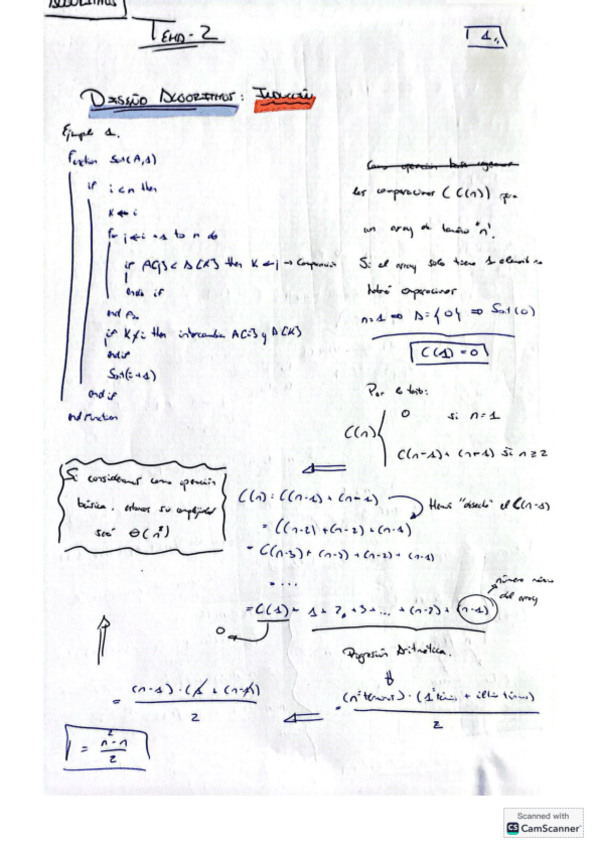 ALGORITMOS
TEMA-2
1.
DISEÑO ALGORITMOS: INDUCCIÓN
Ejemplo 1.
Function Sort(A,1)
if i<n then
K←i
for j←i+1 to n do
if A[j] < A[K] then K←j → Comparación
end if
end for
if K≠i then intercambia A[i] y A[K]
endif
Sort(i+1)
end if
end function
Como operación básica
las comparaciones (C(n)) para
un array de tamaño "n".
Si el array solo tiene 1 elemento no
habrá operaciones
n=1 ⇒ A={0} ⇒ Sort(0)
C(1)=0
Por lo tanto:
C(n)
0 si n=1
C(n-1)+(n-1) si n≥2
Si consideramos como operación
básica, entonces su complejidad
será Θ(n²)
C(n): C(n-1)+(n-1)
Hemos el C(n-1)
= C(n-2)+(n-2)+(n-1)
= C(n-3)+(n-3)+(n-2)+(n-1)
= ....
= C(1)+1+2+3+...+(n-2)+(n-1)
número
del array
0
Progresión Aritmética.
= (nº términos)·(1º término + últ. término)
2
= (n-1)·(1+(n-1))
2
= n²-n
2
Scanned with
CS CamScanner